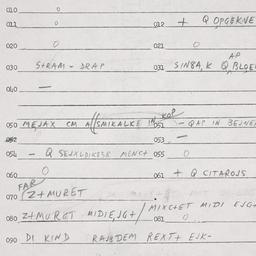 010 0
011 0 012 + Q OPGEKNE
020 0 021 0
030 STRAM - DRAP 031 SINBA, K Q BLOE
AP
040 —
KOP
050 MEJAX CM A SMIKALKE IN 051 - QAP IN BEJNE
052 053 —
054 - Q SEJXLDIKESE MENCT 055 0
060 0 061 + Q CITAROJS
FAR
070 Z+MURET
080 Z+MURET MIDIEJG+/ MIXCTET MIDI EJG+
081 0
090 DI KIND RAJSDEM REXT+ EJK-